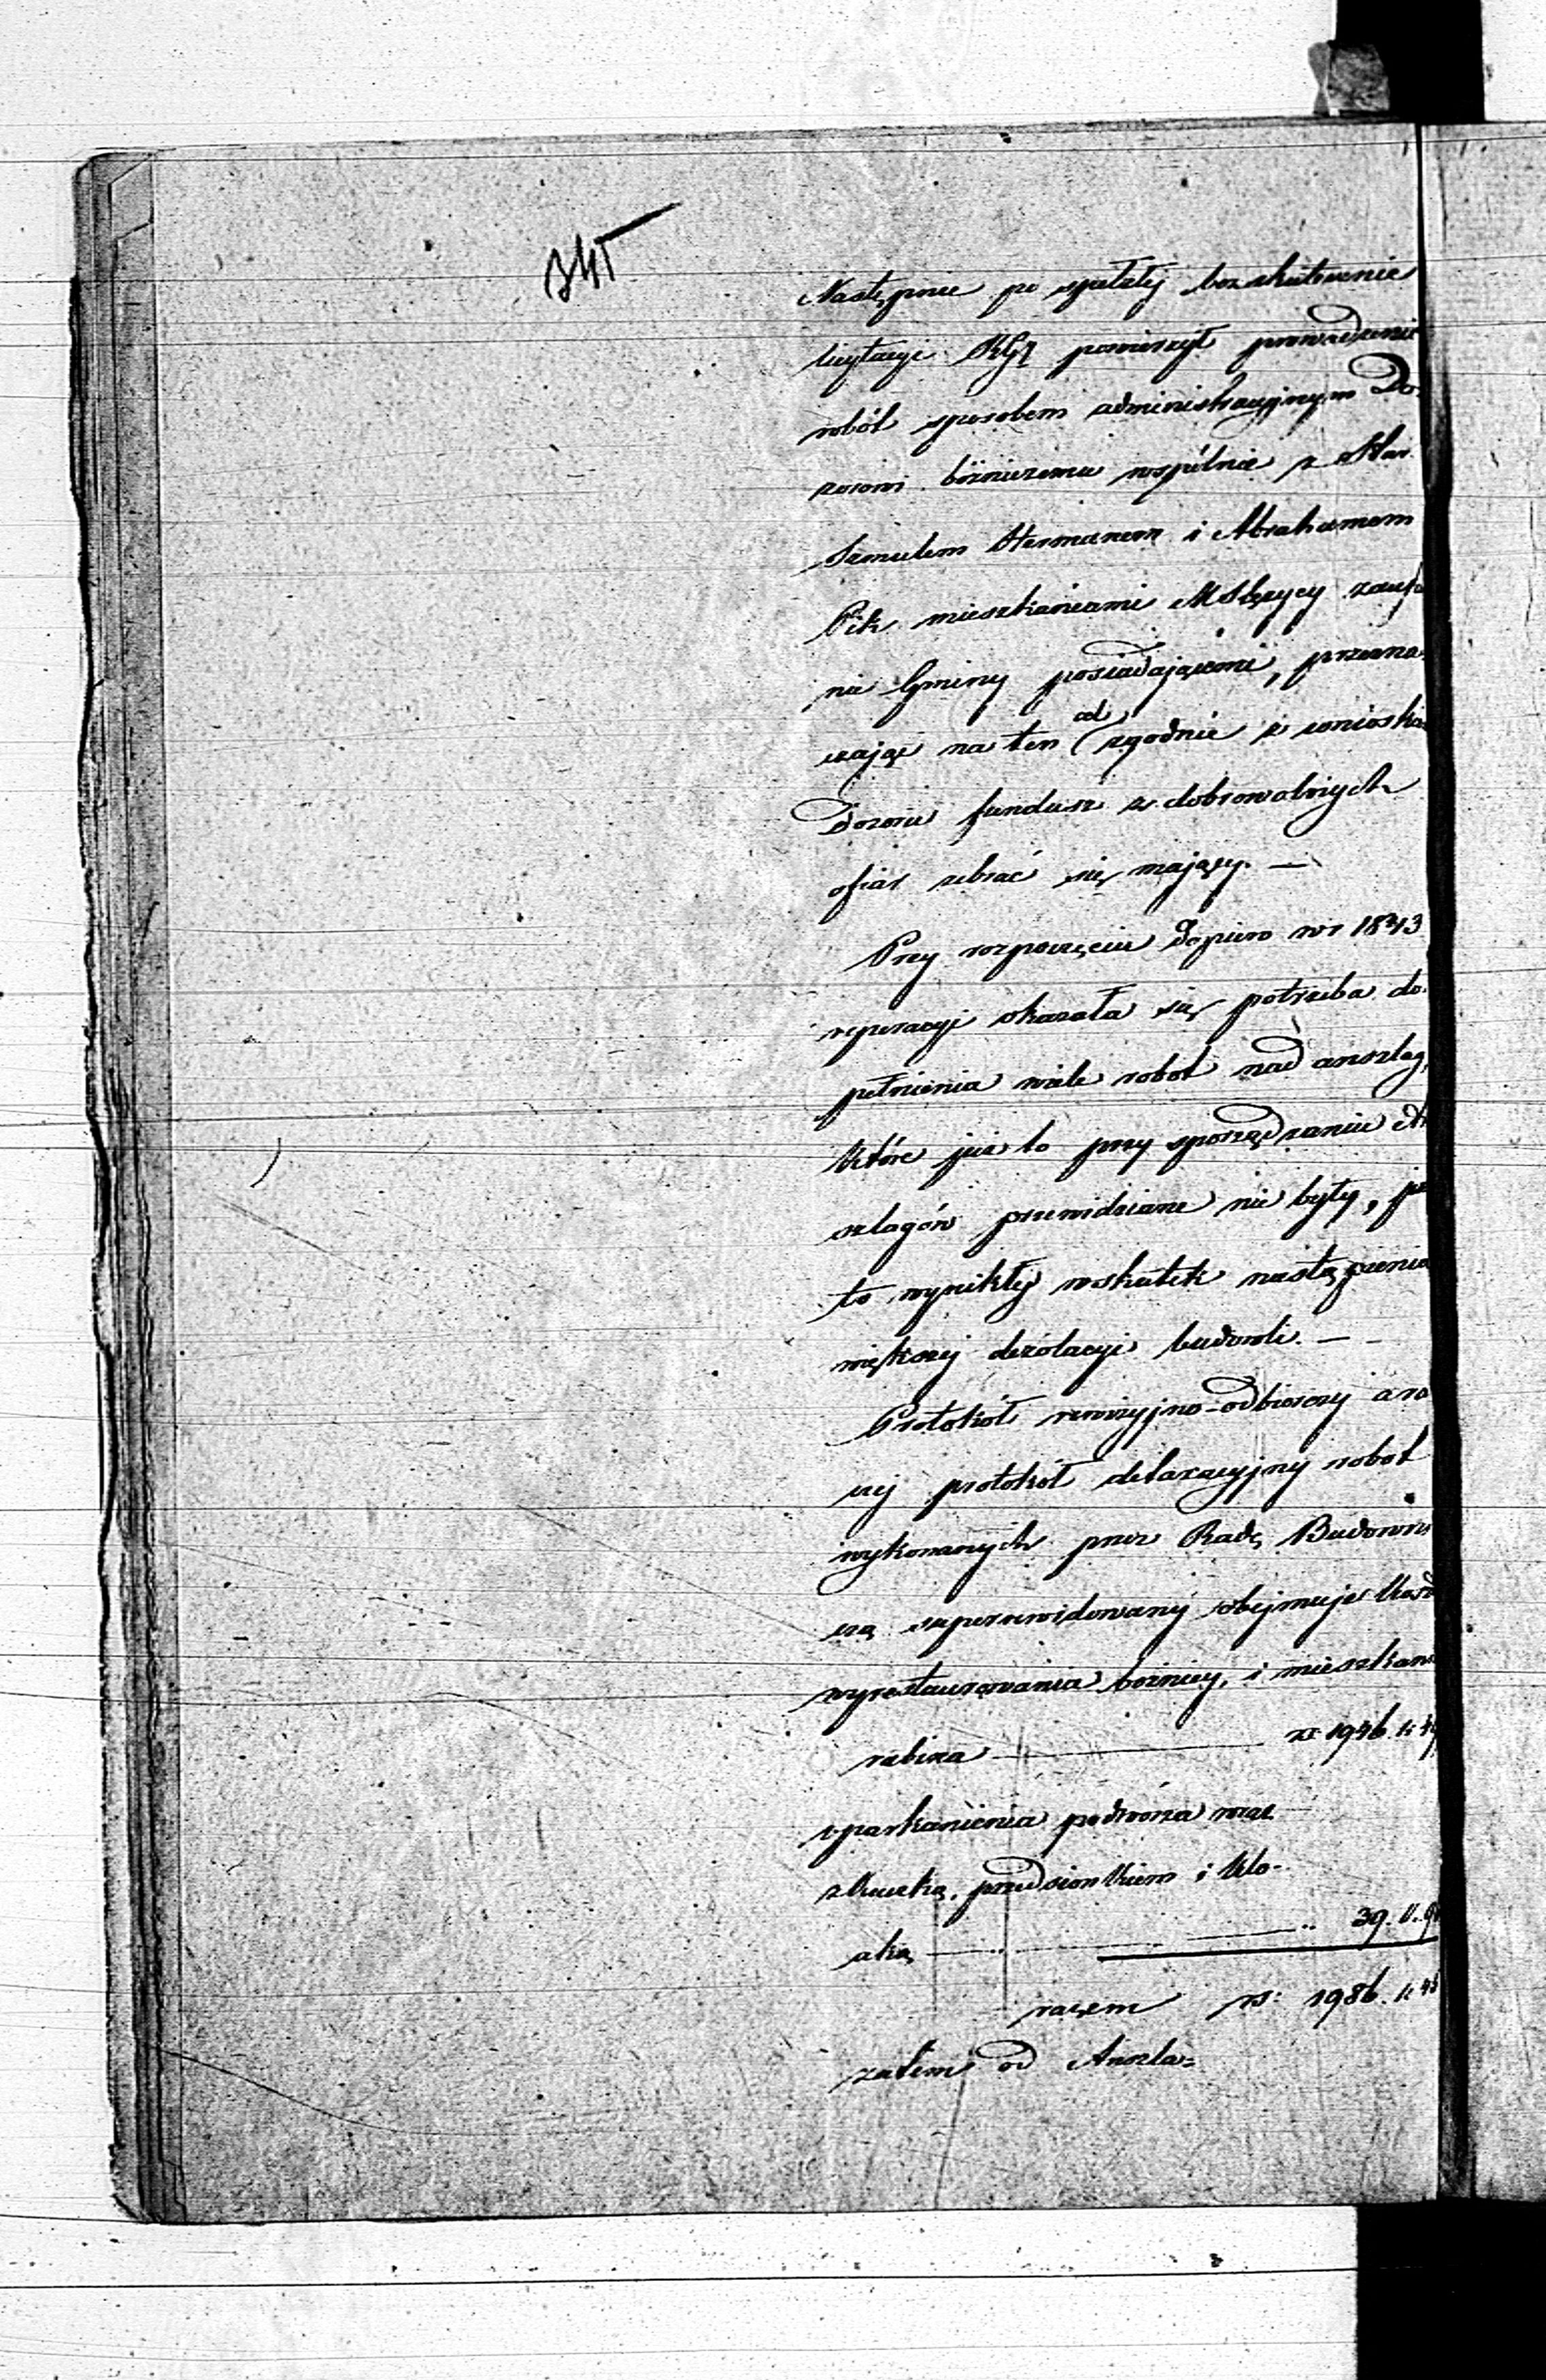 345
Następnie po spełzłej bezskutecznie
licytacyi RGł poruczył prowadzenie
robót sposobem administracyjnym Do-
zorowi bóżniczemu wspólnie z Star.
Szmulem Hermanem i Abrahamem
Pik mieszkańcami M Słupcy zaufa
nie Gminy posiadającemi, przezna-
czając na ten cel zgodnie z wnioskie
Dozoru fundusz z dobrowolnych
ofiar zebrać się mający. —
Przy rozpoczęciu dopiero w r 1843
reperacyi okazała się potrzeba do-
pełnienia wiele robot nad anszlag,
które już to przy sporządzaniu An
szlagów przewidziane nie były, ju
to wynikłej wskutek nastąpienia
większej dezolacyi budowli. —
Protokół rewizyjno-odbiorczy a ra
czej protokół detaxacyjny robot
wykonanych przez Radę Budowni
czą superrewidowany obejmuje koszt
wyrestaurowania bóżnicy, i mieszkani
rabina — rs 1946. k 49
oparkanienia podwórza wraz
z kuczką, przedsionkiem i klo-
aką — .. 39. k. 9
razem rs: 1986. k 48
zatem od Anszla=